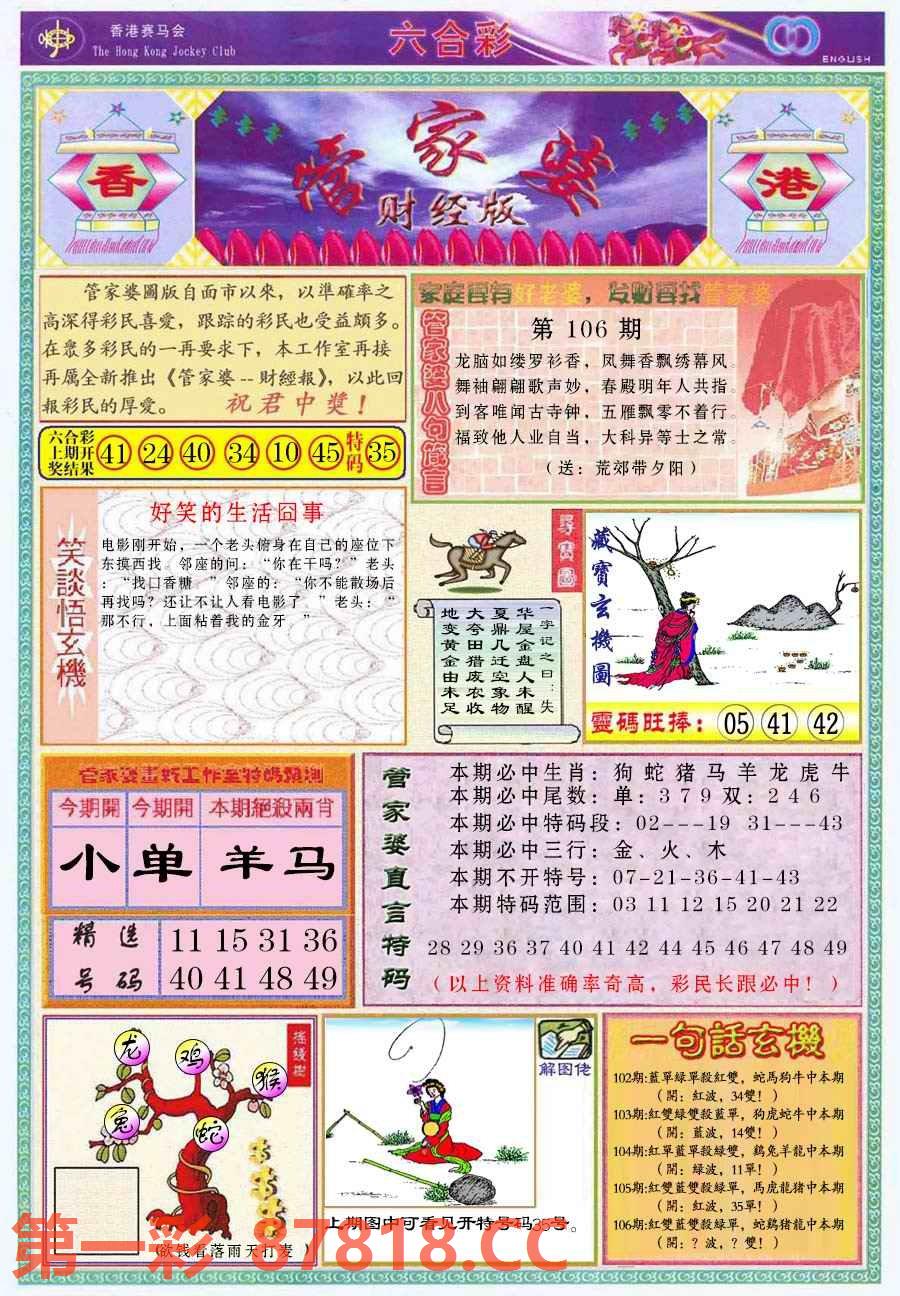 香港赛马会
The Hong Kong Jockey Club
六合彩
ENGLISH
香
管家婆
财经版
港
管家婆圖版自面市以來，以準確率之
高深得彩民喜愛，跟踪的彩民也受益頗多。
在眾多彩民的一再要求下，本工作室再接
再厲全新推出《管家婆--財經報》，以此回
報彩民的厚愛。 祝君中獎！
六合彩
上期开
奖结果
41 24 40 34 10 45 特码 35
家庭要有好老婆，发财要找管家婆
管家婆八句箴言
第 106 期
龙脑如缕罗衫香，凤舞香飘绣幕风。
舞袖翩翩歌声妙，春殿明年人共指。
到客唯闻古寺钟，五雁飘零不着行。
福致他人业自当，大科异等士之常。
（送：荒郊带夕阳）
笑談悟玄機
好笑的生活囧事
电影刚开始，一个老头俯身在自己的座位下
东摸西找。邻座的问：“你在干吗？”老头
：“找口香糖。”邻座的：“你不能散场后
再找吗？还让不让人看电影了。”老头：“
那不行，上面粘着我的金牙。”
尋寶圖
一字记之曰：失
华屋金盘人未醒
夏鼎几迁空象物
大夸田猎废农收
地变黄金由未足
藏寶玄機圖
靈碼旺捧： 05 41 42
今期開 今期開 本期絕殺兩肖
小 单 羊马
精选
号码
11 15 31 36
40 41 48 49
管家婆直言特码
本期必中生肖：狗 蛇 猪 马 羊 龙 虎 牛
本期必中尾数：单：3 7 9 双：2 4 6
本期必中特码段：02---19 31---43
本期必中三行：金、火、木
本期不开特号：07-21-36-41-43
本期特码范围：03 11 12 15 20 21 22
28 29 36 37 40 41 42 44 45 46 47 48 49
（以上资料准确率奇高，彩民长跟必中！）
摇錢樹
龙
鸡
猴
兔
蛇
（欲钱看落雨天打麦）
解图佬
上期图中可看见开特号码35号。
一句話玄機
102期:藍單綠單殺紅雙，蛇馬狗牛中本期
（開：紅波，34雙！）
103期:紅雙綠雙殺藍單，狗虎蛇牛中本期
（開：藍波，14雙！）
104期:紅單藍單殺綠雙，鷄兔羊龍中本期
（開：綠波，11單！）
105期:紅雙藍雙殺綠單，馬虎龍猪中本期
（開：紅波，35單！）
106期:紅雙藍雙殺綠單，蛇鷄猪龍中本期
（開：？波，？雙！）
第一彩 87818.CC